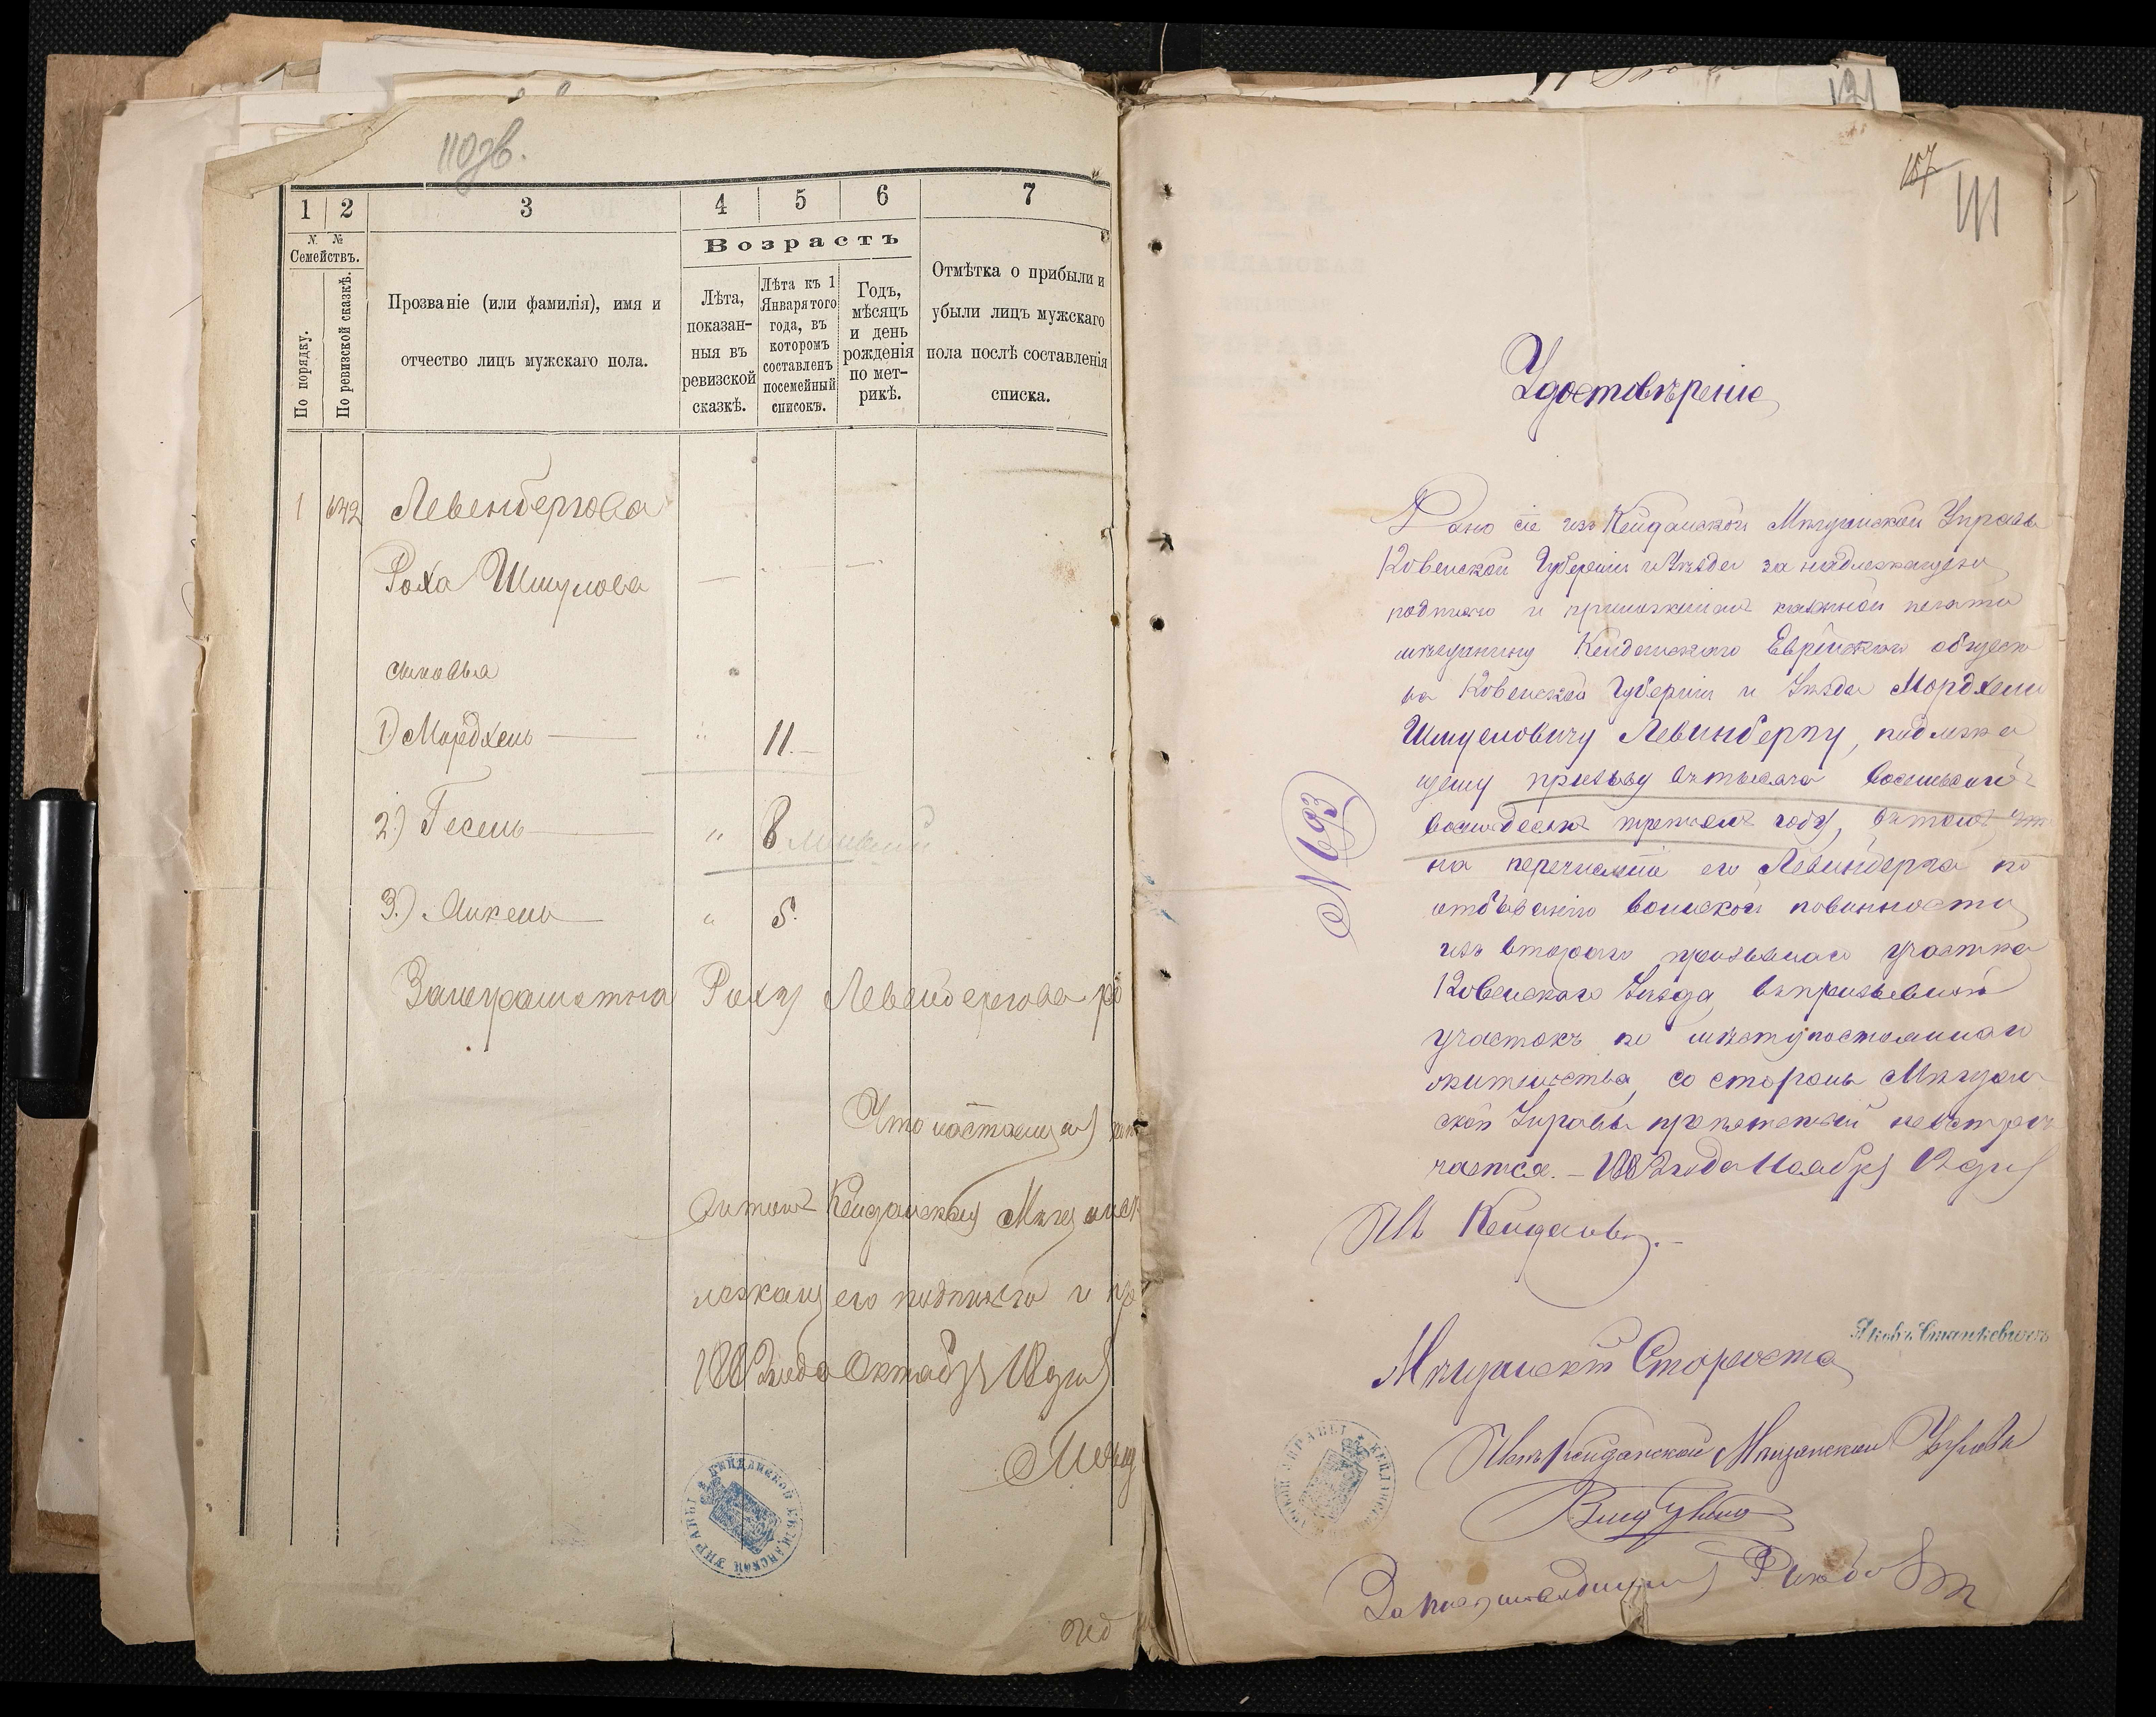 110зв.
1 2 3 4 5 6 7
N. №
Семействъ.
По порядку.
По ревизской сказкѣ.
Прозваніе (или фамилія), имя и
отчество лицъ мужскаго пола.
Возрастъ
Лѣта,
показан-
ныя въ
ревизской
сказкѣ.
Лѣта къ 1
Января того
года, въ
которомъ
составленъ
посемейный
списокъ.
Годъ,
мѣсяцъ
и день
рожденія
по мет-
рикѣ.
Отмѣтка о прибыли и
убыли лицъ мужскаго
пола послѣ составленія
списка.
1 642 Левенбергова
Роха Шмулова
сыновья
1) Мордхель — " 11.
2.) Гесель — " 8
3.) Анкель — " 5.
Рохи Левенбергова
Что настоящая
Кейданская Мѣщанск
лежащ его подписью и
1882 года Октября 18 дня
КЕЙДАНСКОЙ МѢЩАНСКОЙ УПРАВЫ
121
157
111
Удостовѣреніе
Дано сіе изъ Кейданской Мѣщанской Управы
Ковенской Губерніи и Уѣзда за надлежащею
подписью и приложеніемъ казенной печати
мѣщанину Кейданскаго Еврейскаго общест
ва Ковенской Губерніи и Уѣзда Мордхелю
Шмуеловичу Левинбергу, подлежа
щему призыву въ тысяча восемьсотъ
восемьдесятъ третьемъ году, въ томъ что
на перечисленіе его Левинберга по
отбыванію воинской повинности
изъ втораго призывнаго участка
Ковенскаго Уѣзда, въ призывной
участокъ по мѣсту постояннаго
жительства, со стороны Мѣщан
ской Управы препятствій не встрѣ
чается. – 1882 года Ноября 12 дня
М. Кейданы. –
№ 693
Мѣщанскій Староста
Яковъ Станкевичъ
Членъ Кейданской Мѣщанской Управы